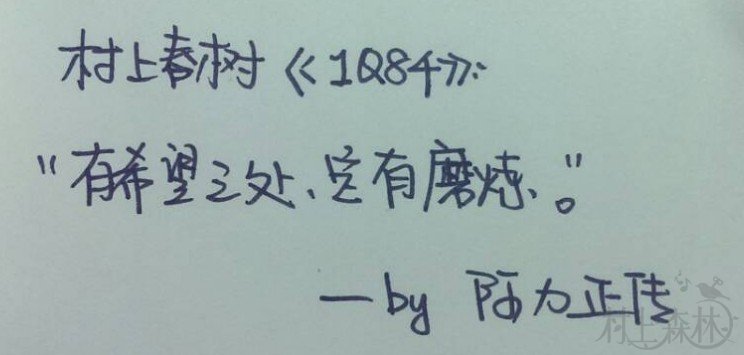 村上春树《1Q84》:
"有希望之处、定有磨炼、。"
—by 阿力正传
村上森林